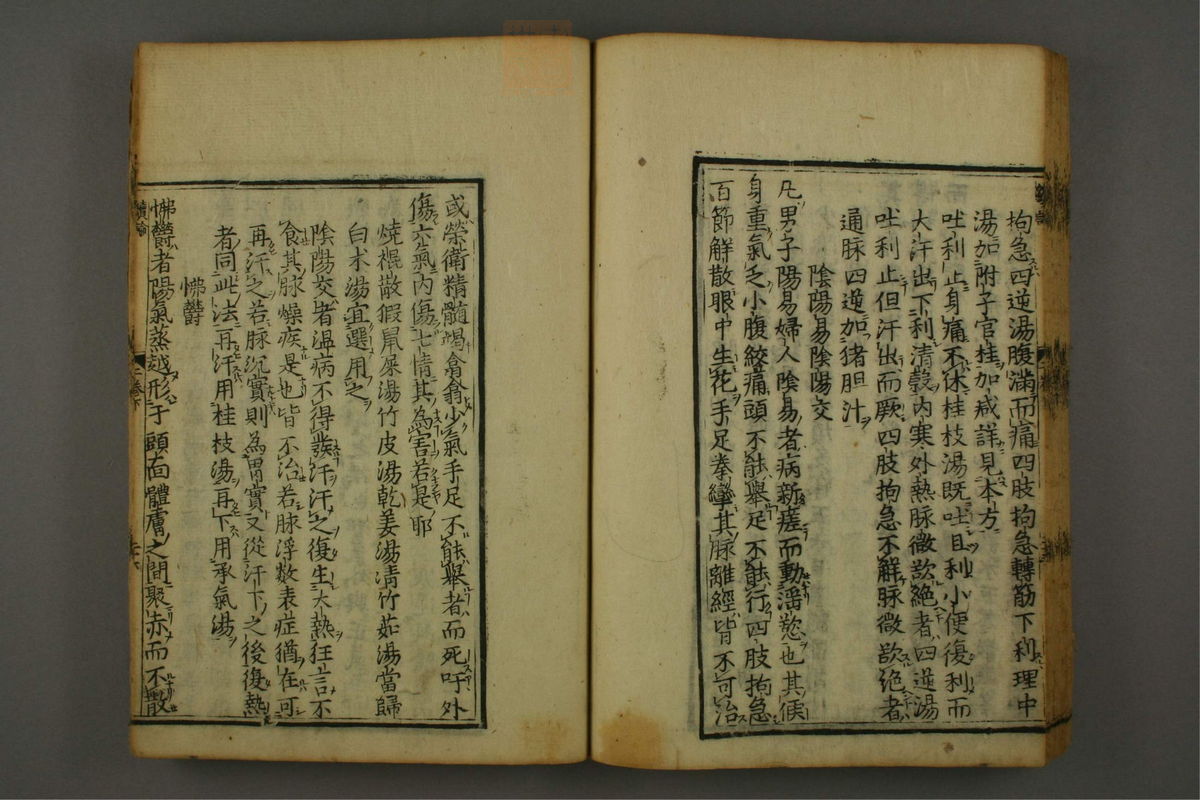 拘急四逆湯腹滿而痛四肢拘急轉筋下利理中
湯加附子官桂加減詳見本方
吐利止身痛不休桂枝湯既吐且利小便復利而
大汗出下利清穀内寒外熱脉微欲絶者四逆湯
吐利止但汗出而厥四肢拘急不解脉微欲絶者
通脉四逆加猪胆汁
陰陽易陰陽交
凡男子陽易婦人陰易者病新瘥而動淫慾也其候
身重氣乏小腹絞痛頭不能舉足不能行四肢拘急
百節解散眼中生花手足拳攣其脉離經皆不可治
或榮衛精髓竭翕翕少氣手足不能舉者而死吁外
傷六氣内傷七情其為害若是耶
燒裩散猳鼠屎湯竹皮湯乾姜湯清竹茹湯當歸
白木湯宜選用之
陰陽交者温病不得發汗汗之復生大熱狂言不
食其脉燥疾是也皆不治若脉浮数表症猶在可
再汗之若脉沉實則為胃實又從汗下之後復熱
者同此法再汗用桂枝湯再下用承氣湯
怫鬱
怫鬱者陽氣蒸越形于頭面體膚之間聚赤而不散